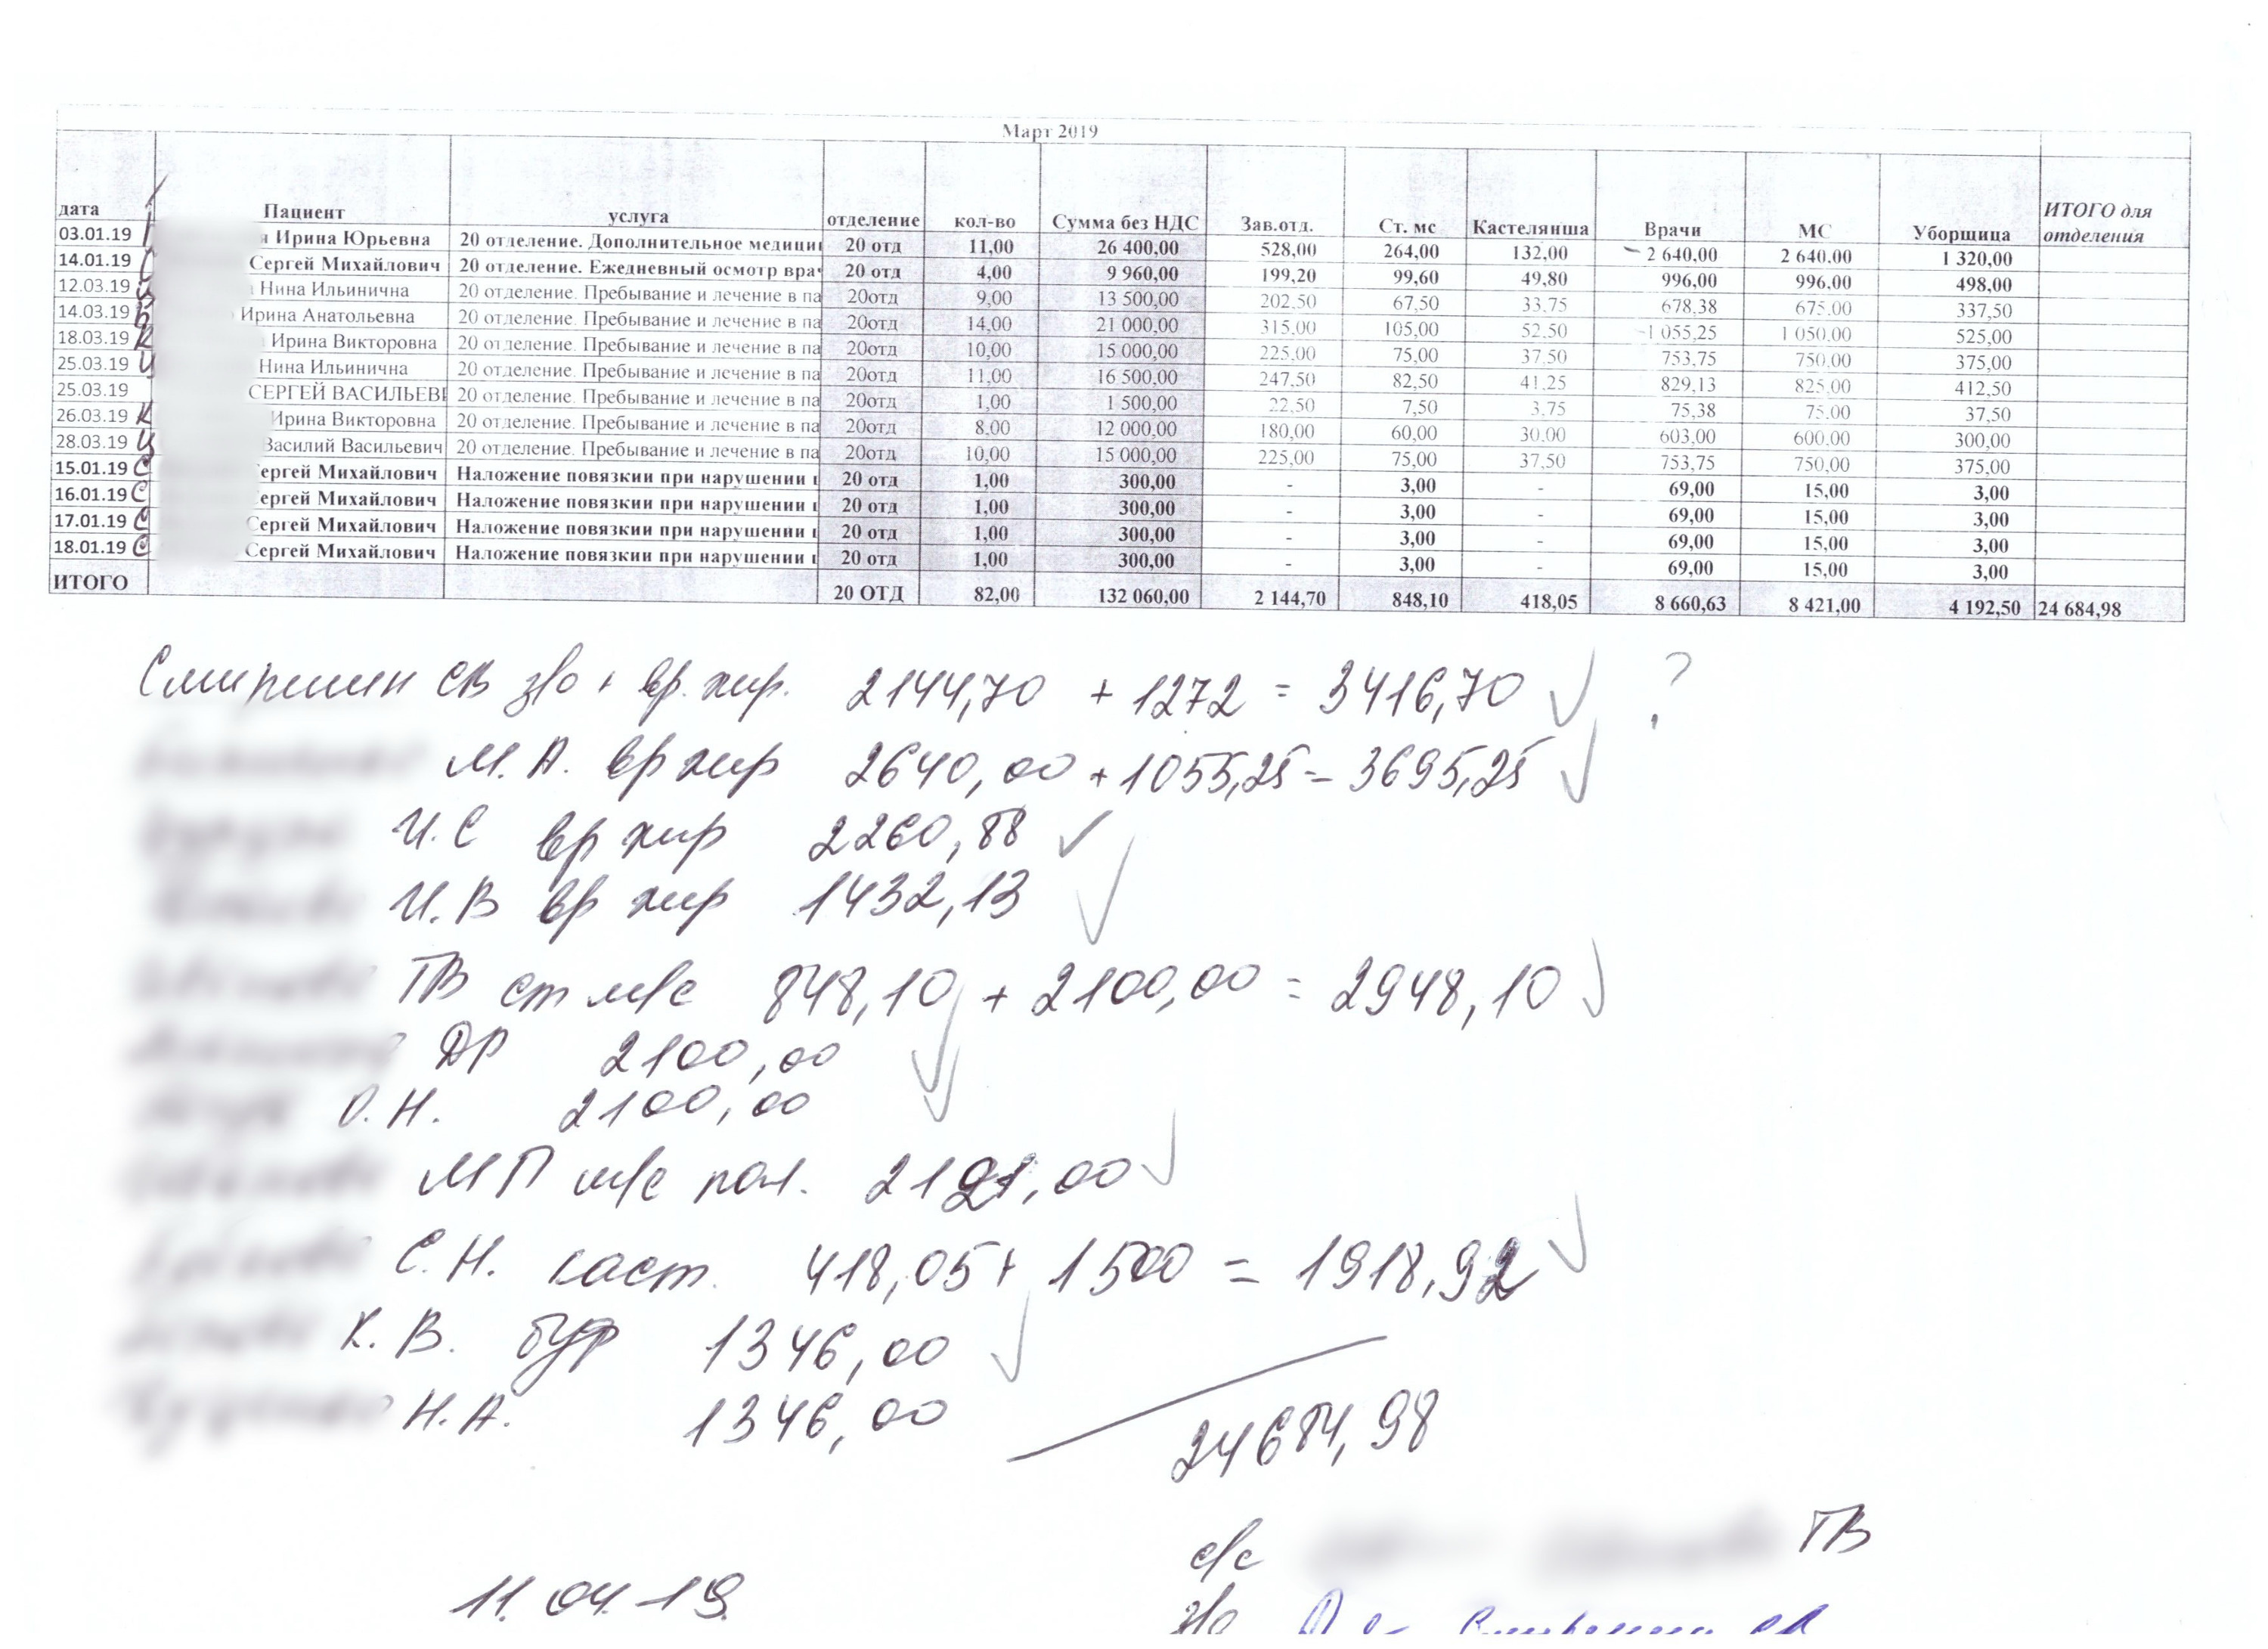 Март 2019
дата Пациент услуга отделение кол-во Сумма без НДС Зав.отд. Ст. мс Кастелянша Врачи МС Уборщица ИТОГО для отделения
03.01.19 Ирина Юрьевна 20 отделение. Дополнительное медици 20 отд 11,00 26 400,00 528,00 264,00 132,00 2 640,00 2 640,00 1 320,00
14.01.19 Сергей Михайлович 20 отделение. Ежедневный осмотр вра 20 отд 4,00 9 960,00 199,20 99,60 49,80 996,00 996,00 498,00
12.03.19 Нина Ильинична 20 отделение. Пребывание и лечение в па 20отд 9,00 13 500,00 202,50 67,50 33,75 678,38 675,00 337,50
14.03.19 Ирина Анатольевна 20 отделение. Пребывание и лечение в па 20отд 14,00 21 000,00 315,00 105,00 52,50 1 055,25 1 050,00 525,00
18.03.19 К Ирина Викторовна 20 отделение. Пребывание и лечение в па 20отд 10,00 15 000,00 225,00 75,00 37,50 753,75 750,00 375,00
25.03.19 Нина Ильинична 20 отделение. Пребывание и лечение в па 20отд 11,00 16 500,00 247,50 82,50 41,25 829,13 825,00 412,50
25.03.19 СЕРГЕЙ ВАСИЛЬЕВ 20 отделение. Пребывание и лечение в па 20отд 1,00 1 500,00 22,50 7,50 3,75 75,38 75,00 37,50
26.03.19 К Ирина Викторовна 20 отделение. Пребывание и лечение в па 20отд 8,00 12 000,00 180,00 60,00 30,00 603,00 600,00 300,00
28.03.19 Василий Васильевич 20 отделение. Пребывание и лечение в па 20отд 10,00 15 000,00 225,00 75,00 37,50 753,75 750,00 375,00
15.01.19 С ергей Михайлович Наложение повязкии при нарушении ц 20 отд 1,00 300,00 - 3,00 - 69,00 15,00 3,00
16.01.19 С ергей Михайлович Наложение повязкии при нарушении ц 20 отд 1,00 300,00 - 3,00 - 69,00 15,00 3,00
17.01.19 С ергей Михайлович Наложение повязкии при нарушении ц 20 отд 1,00 300,00 - 3,00 - 69,00 15,00 3,00
18.01.19 С Сергей Михайлович Наложение повязкии при нарушении ц 20 отд 1,00 300,00 - 3,00 - 69,00 15,00 3,00
ИТОГО 20 ОТД 82,00 132 060,00 2 144,70 848,10 418,05 8 660,63 8 421,00 4 192,50 24 684,98
СВ з/о + вр. хир. 2144,70 + 1272 = 3416,70 ?
М.А. вр хир 2640,00 + 1055,25 = 3695,25
И.С вр хир 2260,88
И.В вр хир 1432,13
ТВ ст м/с 848,10 + 2100,00 = 2948,10
ДР 2100,00
О.Н. 2100,00
МП м/с пол. 2121,00
С.Н. каст. 418,05 + 1500 = 1918,92
К.В. буф 1346,00
Н.А. 1346,00
24684,98
с/с ТВ
11.04.19.
з/о